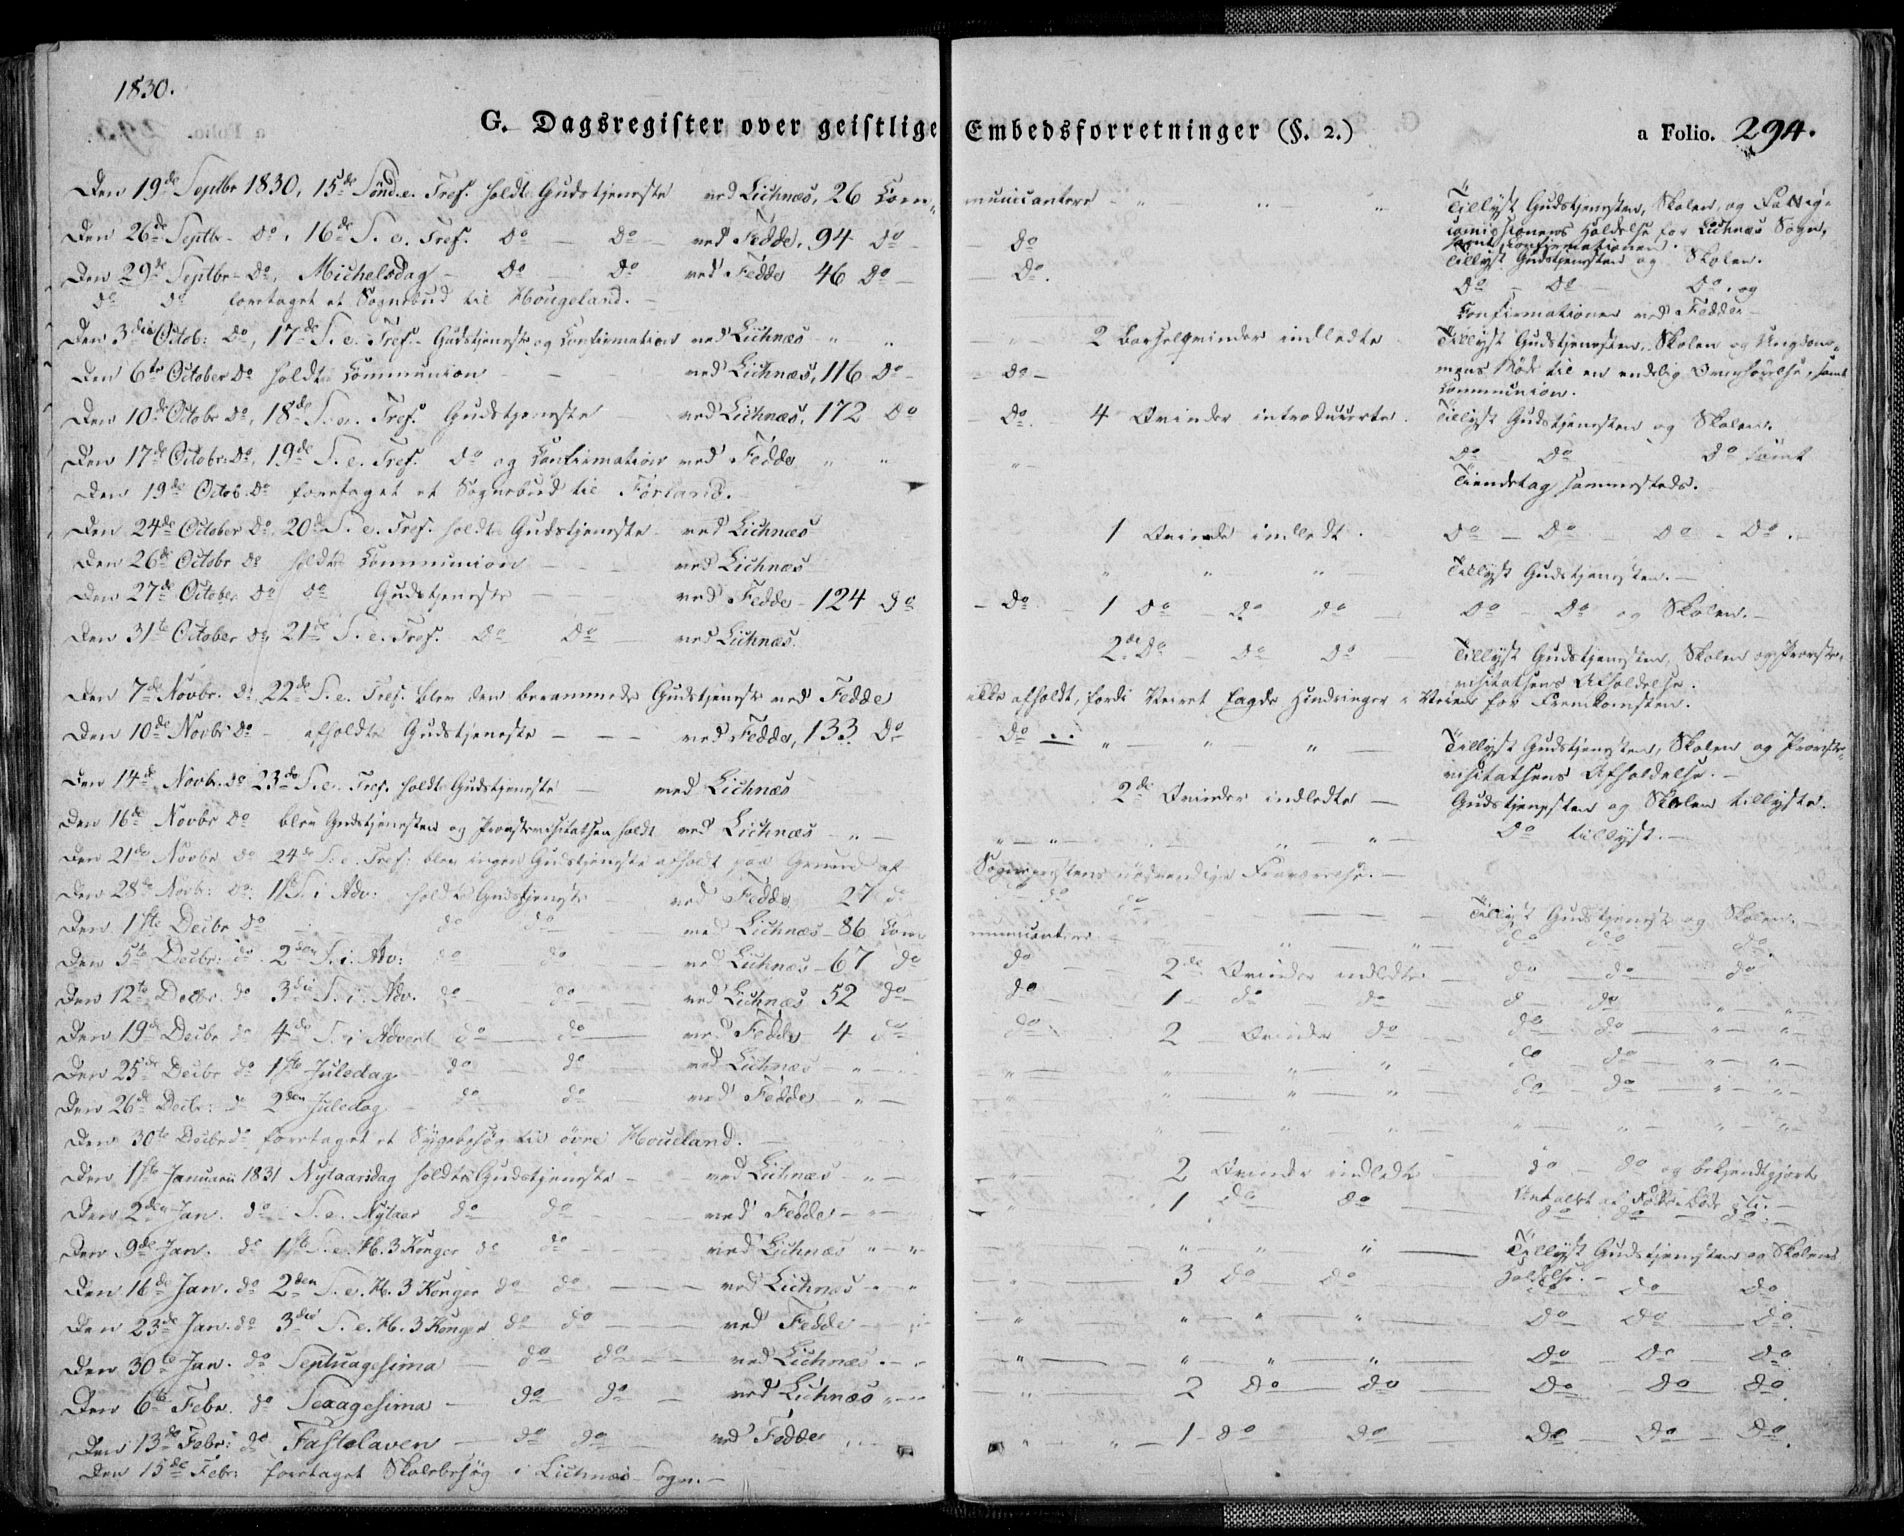 1830.
G. Dagsregister over geistlige Embedsforretninger (§. 2.) a Folio. 294.
Den 19de Septbr 1830, 15de Sönd. e. Tref. holdt Gudstjeneste ved Lichnæs, 26 Communicantere - " " " Tillyst Gudstjenesten, Skolen, og Fattig-
comissionens Holdelse for Lichnæs Sogn,
samt Confirmationen.
Den 26de Septbr - do, 16de S. e. Tref. do — do — ved Fedde, 94 do — do Tillyst Gudstjenesten og Skolen.
Den 29de Septbr - do, Michelsdag - do — do ved Fedde 46 do — do. do — do — do, og
Confirmationen ved Fedde -
do do foretaget et Sognebud til Hougeland. -
Den 3die Octob: do, 17de S. e. Tref. - Gudstjeneste og Confirmation ved Lichnæs - " " — " 2 Barselqvinder indledte Tillyst Gudstjenesten, Skolen og Ungdom-
mens Möde til en endelig Overhörelse, samt
Communion.
Den 6te October do holdt Communion - - ved Lichnæs, 116 do - - do -
Den 10de Octobr do, 18de S. e. Tref. Gudstjeneste ved Lichnæs, 172 do - do. - 4 Qvinder introducerte. Tillyst Gudstjenesten og Skolen.
Den 17de Octobr: do, 19de S. e. Tref. do og Confirmation ved Fedde " " " do — do — do samt
Tiendetag sammesteds.
Den 19de Octob. do foretaget et Sognebud til Förland. -
Den 24de October do, 20de S. e. Tref. holdt Gudstjeneste ved Lichnæs 1 Qvinde indledt. do — do — do - do.
Den 26de Octobr do holdt Communion - - - ved Lichnæs " " " - Tillyst Gudstjenesten. -
Den 27de October do do Gudstjeneste - - ved Fedde - 124 do - do - 1 do - do do - do do og Skolen. -
Den 31te October do 21de S. e. Tref. do do ved Lichnæs. 2de do - do do - Tillyst Gudstjenesten, Skolen og Provste-
visitatsens Afholdelse.
Den 7de Novbr. do, 22de S. e. Tref. blev den berammede Gudstjeneste ved Fedde ikke afholdt, fordi Veiret lagde Hindringer i Veien for Fremkomsten.
Den 10de Novbr do - afholdt Gudstjeneste - - - ved Fedde, 133 do - do - " " " - Tillyst Gudstjenesten, Skolen og Provste-
visitatsens Afholdelse. -
Den 14de Novbr. do 23de S. e. Tref. holdt Gudstjeneste - ved Lichnæs 2de Qvinder indledte - Gudstjenesten og Skolen tillyste.
Den 16de Novbr do blev Gudstjenesten og Provstevisitatsen holdt ved Lichnæs - " - " " " " do tillyst. -
Den 21de Novbr do 24de S. e. Tref: blev ingen Gudstjeneste afholdt paa Grund af Sognepræstens nödvendige Fraværelse. -
Den 28de Novb: do: 1ste S. i Adv: holdt Gudstjeneste ved Fedde 27 do do do — — — Tillyst Gudstjeneste og Skolen. -
Den 1ste Decbr do - - do do ved Lichnæs - 86 Communicantere - " " do do — do.
Den 5te Decbr: do. 2den S. i. Adv: do do ved Lichnæs - 67 do do - 2de Qvinder indledte - do — do do
Den 12te Decbr. do 3die S. i. Adv. do - do ved Lichnæs 52 do - do - 1 - do - do - do do " "
Den 19de Decbr do 4de S. i Advent do do ved Fedde 4 do do - 2 Qvinder do - do do - " "
Den 25de Decbr do 1ste Juledag - do do ved Lichnæs - " - " " " " - do do - " - " -
Den 26de Decbr: do 2den Juledag - do do ved Fedde - " - " " " " - do - do - " - " -
Den 30te Decbr do foretaget et Sygebesög til övre Houeland. - " " " " " " "
Den 1ste Januarii 1831 Nytaarsdag holdtes Gudstjeneste - ved Lichnæs - " - " 2 Qvinder indledte do - do og bekjendtgjort
Den 2den Jan. do - S. e. Nytaar do do ved Fedde - " - " 1 do do do do - do -
Den 9de Jan. do 1ste S. e. H. 3 Konger do do ved Lichnæs " - " - " " " " - Tillyst Gudstjenesten og Skolens
Holdelse. -
Den 16de Jan. do 2den S. e. H. 3 Konger do do — ved Lichnæs - " - " 3 do do - do do do
Den 23de Jan. do 3die S. e. H. 3 Konger do do — ved Fedde - " " " " - do do — do.
Den 30te Jan. do Septuagesima - do do — ved Lichnæs. - " - " " " " - do — do — do
Den 6te Febr. do Sexagesima - do do — ved Lichnæs " - " 2 do — do — do — do — do
Den 13de Febr: do Fastelaven - do do — ved Fedde " - " 1 - do do do — do — do.
Den 15de Febr: foretaget Skolebesög i Lichnæs Sogn. -